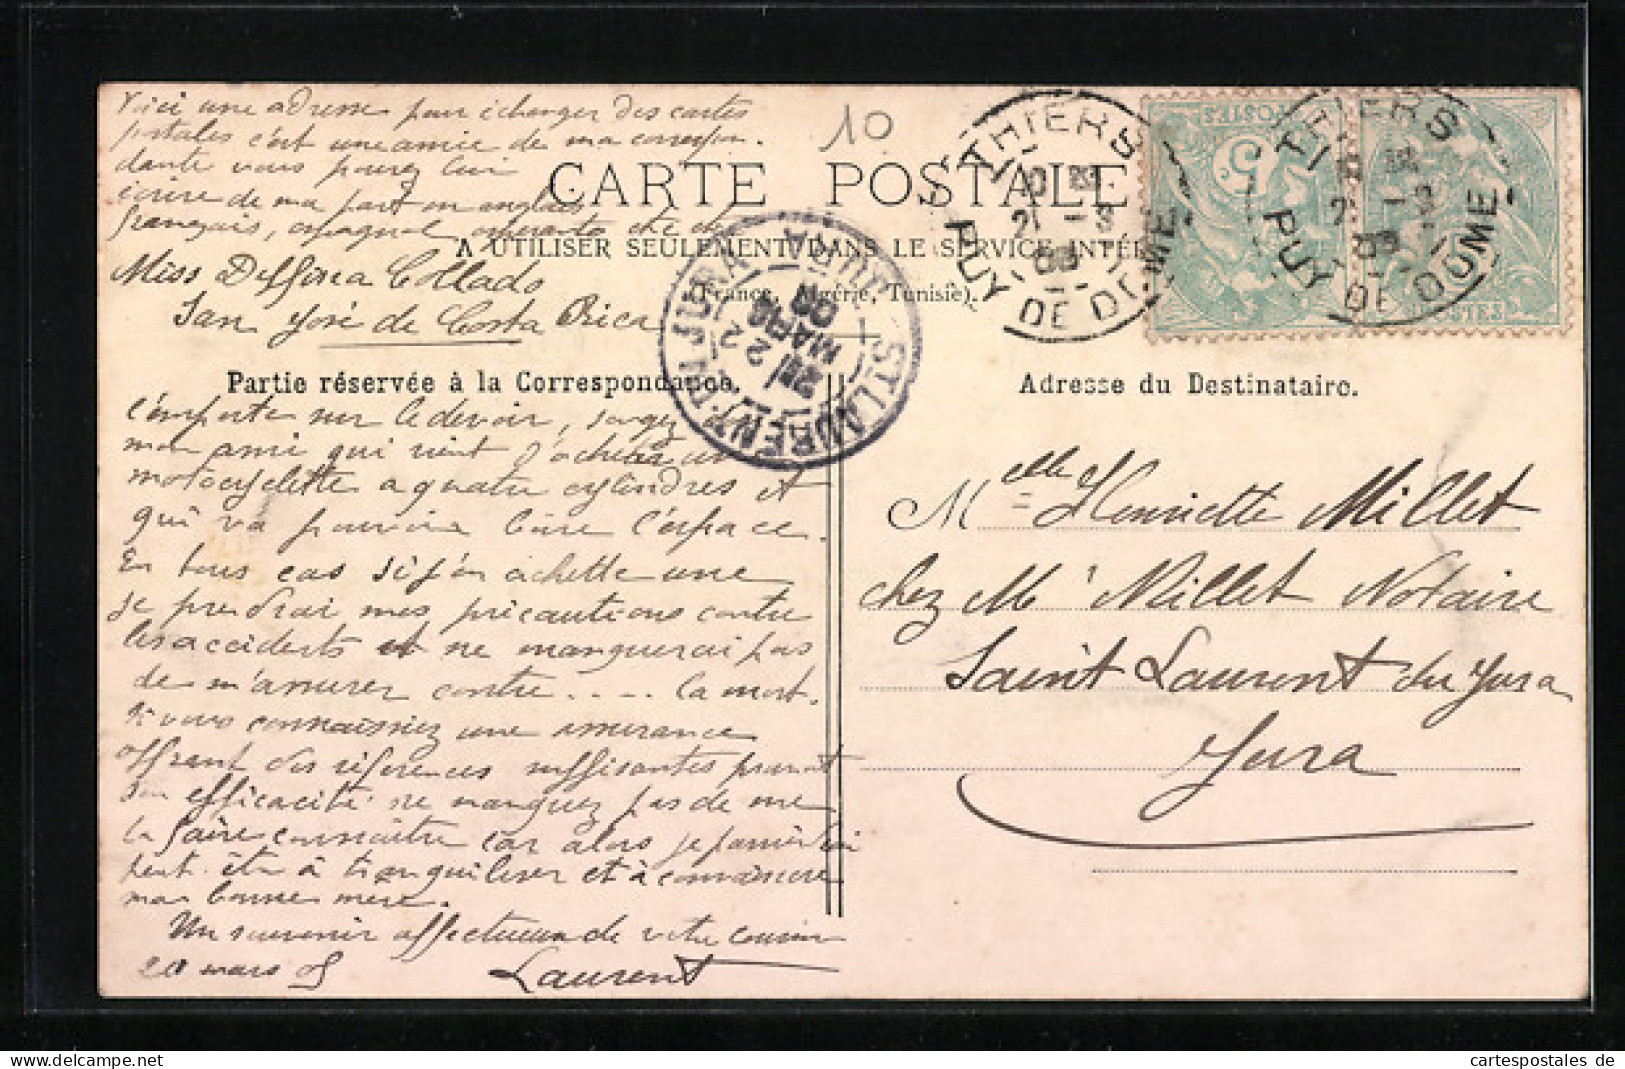 Voici une adresse pour échanger des cartes
postales c'est une amie de ma correspon.
dante vous pouvez lui
écrire de ma part en anglais
français, espagnol esperanto etc etc
Miss Collado
San José de Costa Rica
10
CARTE POSTALE
A UTILISER SEULEMENT DANS LE SERVICE INTÉ
(France, Algérie, Tunisie).
THIERS
PUY DE DOME
21 -3
THIERS
PUY DE DOME
POSTES
5
POSTES
ST LAURENT-DU-JURA
JURA
22
MARS
Partie réservée à la Correspondance.
Adresse du Destinataire.
l'emporte sur le devoir, songez
mon ami qui vient d'acheter un
motocyclette a quatre cylindres et
qui va pouvoir boire l'espace.
En tous cas si j'en achette une
je prendrai mes précautions contre
les accidents et ne manquerai pas
de m'assurer contre .... la mort.
Si vous connaissiez une assurance
offrant des références suffisantes prouvant
son efficacité ne manquez pas de me
la faire connaitre car alors je parviendrai
peut être à tranquiliser et à convaincre
ma bonne mère.
Un souvenir affectueux de votre cousin
20 mars 08
Laurent
Melle Henriette Millet
chez Me Millet Notaire
Saint Laurent du Jura
Jura
cartespostales de